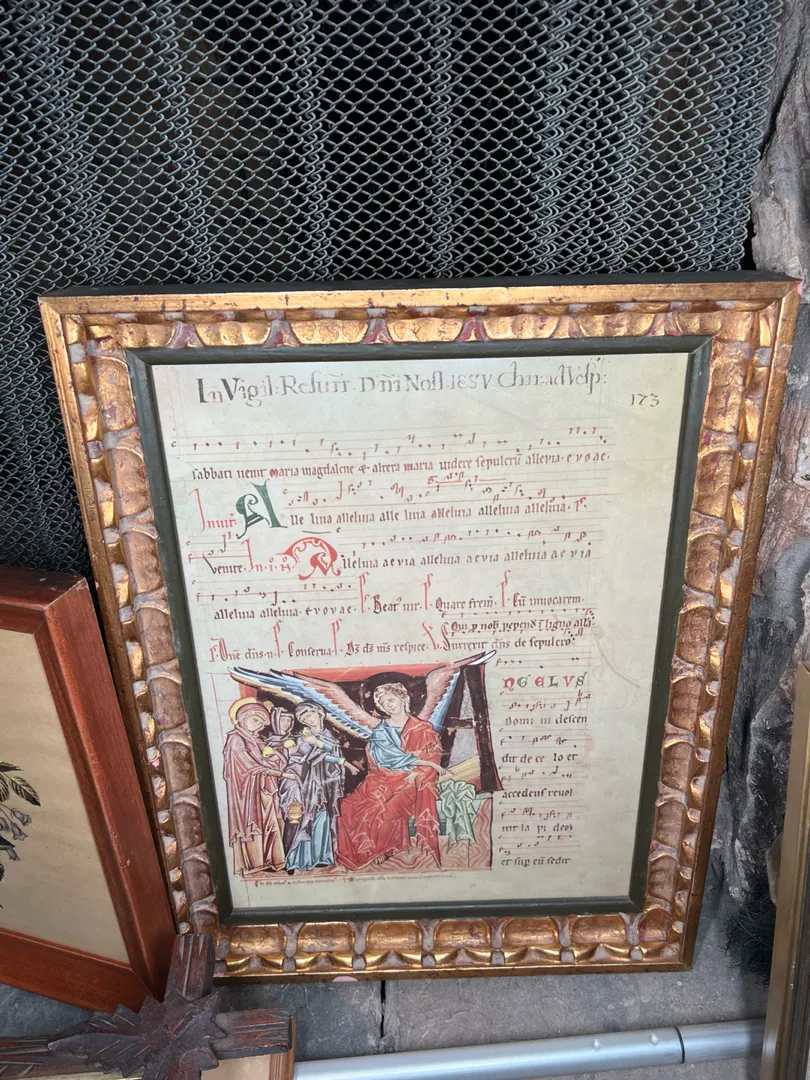 In Vigil: Resurr. Dñi Nost IESV Chri: ad Vesp:
173
sabbati uenit maria magdalene & altera maria uidere sepulcrũ alleuia · e v o a e ·
Inuit. Alle luia alleluia alle luia alleluia alleluia alleluia · p̃.
Venite. In. i. Ñ Alleluia a e v i a alleluia a e v i a alleluia a e v i a
alleluia alleluia · e v o v a e · Beat' uir. Quare frem̃. Cũ inuocarem.
Qui p nob̃ pepend ĩ ligno alła
Dñe dñs n. Conserua. Ds ds ms respice. V. Surrexit dñs de sepulcro
NGELVS
Domi ni descen
dit de ce lo et
accedens reuol
uit la pi dem
et sup eũ sedit